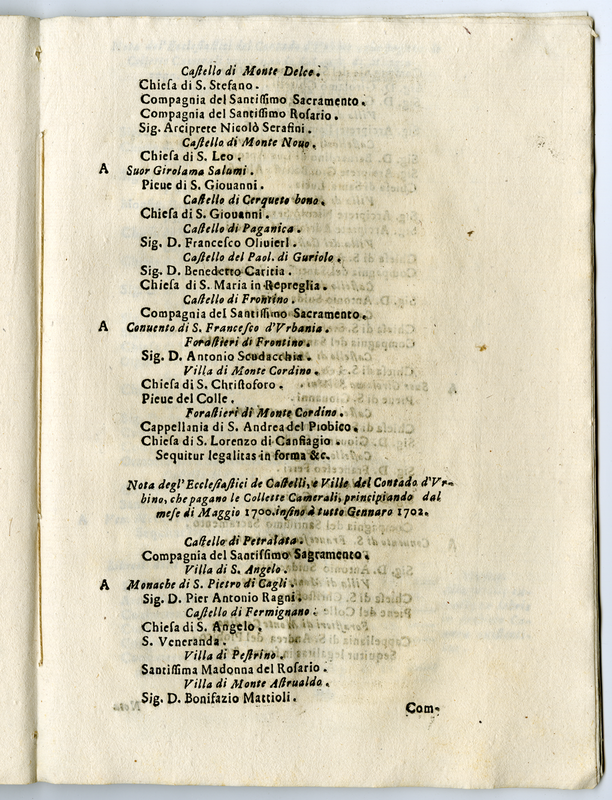 Caſtello di Monte Delce.
Chieſa di S. Stefano.
Compagnia del Santiſſimo Sacramento.
Compagnia del Santiſſimo Roſario.
Sig. Arciprete Nicolò Serafini.
Caſtello di Monte Nouo.
Chieſa di S. Leo.
A Suor Girolama Salumi.
Pieue di S. Giouanni.
Caſtello di Cerqueto bono.
Chieſa di S. Giouanni.
Caſtello di Paganica.
Sig. D. Franceſco Oliuieri.
Caſtello del Paol. di Guriolo.
Sig. D. Benedetto Caritia.
Chieſa di S. Maria in Repreglia.
Caſtello di Frontino.
Compagnia del Santiſſimo Sacramento.
A Conuento di S. Franceſco d'Vrbania.
Foraſtieri di Frontino.
Sig. D. Antonio Scudacchia.
Villa di Monte Cordino.
Chieſa di S. Chriſtoforo.
Pieue del Colle.
Foraſtieri di Monte Cordino.
Cappellania di S. Andrea del Piobico.
Chieſa di S. Lorenzo di Canfiagio.
Sequitur legalitas in forma &c.
Nota degl'Eccleſiaſtici de Caſtelli, e Ville del Contado d'Vr-
bino, che pagano le Collette Camerali, principiando dal
meſe di Maggio 1700. inſino à tutto Gennaro 1702.
Caſtello di Petralata.
Compagnia del Santiſſimo Sagramento.
Villa di S. Angelo.
A Monache di S. Pietro di Cagli.
Sig. D. Pier Antonio Ragni.
Caſtello di Fermignano.
Chieſa di S. Angelo.
S. Veneranda.
Villa di Peſtrino.
Santiſſima Madonna del Roſario.
Villa di Monte Aſtrualdo.
Sig. D. Bonifazio Mattioli.
Com-